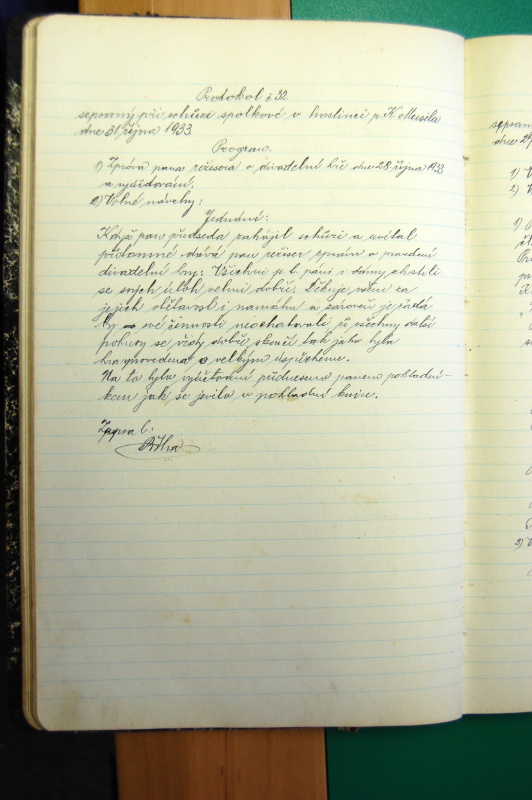 Protokol č 32.
sepsaný při schůzi spolkové v hostinci p. K. Meisela
dne 31/října 1933.
Program.
1) Zpráva pana režisora o divadelní hře dne 28. října 1933
a vyúčtování.
2) Volné návrhy:
Jednání:
Když pan předseda zahájil schůzi a uvítal
přítomné dává pan režiser zprávu o provedení
divadelní hry: Všichni p. t. páni i dámy zhostili
se svých úloh velmi dobře. Děkuje všem za
jejich obětavost i námahu a zároveň je žádá
by své činnosti neochabovali, a všechny další
pokusy se vždy dobře skončí tak jako byla
hra provedena s velkým úspěchem.
Na to bylo vyúčtování předneseno panem pokladní-
kem jak se jevilo v pokladní knize.
Zapsal:
sepsan
dne 29
1) V
2) V
1)
2) V